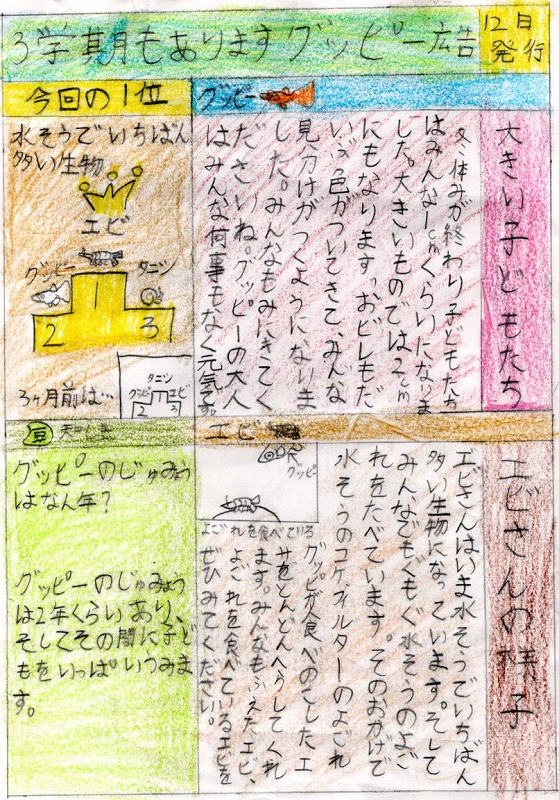 3学期もありますグッピー広告
12日
発行
今回の1位
水そうでいちばん
多い生物
エビ
グッピー
タニシ
1
2
3
3ヶ月前は…
タニシ
グッピー
エビ
1
2
3
グッピー
大きい子どもたち
冬休みが終わり子どもたち
はみんな1cmくらいになりま
した。大きいものでは2cm
にもなります。おビレもだ
いぶ色がついてきて、みんな
見分けがつくようになりま
した。みんなもみにきてく
ださいね。グッピーの大人
はみんな何事もなく元気です。
エビ
エビさんの様子
エビさんはいま水そうでいちばん
多い生物になっています。そして
みんなでもぐもぐ水そうのよご
れをたべています。そのおかげで
水そうのコケフィルターのよごれ
グッピが食べのこしたエ
サをどんどんへらしてくれ
ます。みんなもふえたエビ、
よごれを食べているエビを
ぜひみてください。
グッピー
よごれを食べている
豆
グッピーのじゅみょう
はなん年?
グッピーのじゅみょう
は2年くらいあり、
そしてその間に子ど
もをいっぱいうみま
す。